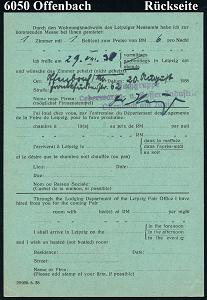 6050 Offenbach Rückseite
Durch den Wohnungsnachweis des Leipziger Messeamts habe ich zur
kommenden Messe bei Ihnen gemietet:
1 Zimmer mit 1 Bett(en) zum Preise von RM 6 pro Nacht
Ich treffe am 29. VIII. 38 vormittags
nachmittags in Leipzig ein
abends
und wünsche das Zimmer geheizt (nicht geheizt)
Ort: Offenbach Datum: 20. August
Straße:
Name resp. Firma:
(möglichst Firmenstempel)
J'ai loué chez vous, par l'entremise du Département des logements
de la Foire de Leipzig, pour la foire prochaine:
chambre à lit(s) au prix de RM par nuit
dans la matinée
J'arriverai à Leipzig le dans l'après-midi
au soir
et je désire que le chambre soit chauffée (ou pas)
Lieu: Date:
Rue:
Nom ou Raison Sociale:
(Cachet de la maison, si possible)
Through the Lodging Department of the Leipzig Fair Office I have
hired from you for the coming Fair
room with bed(s) at RM per night
in the forenoon
I shall arrive in Leipzig on the in the afternoon
in the evening
and I wish an heated (not heated) room:
Place: Date:
Street:
Name or Firm:
(Please add stamp of your firm, if possible)